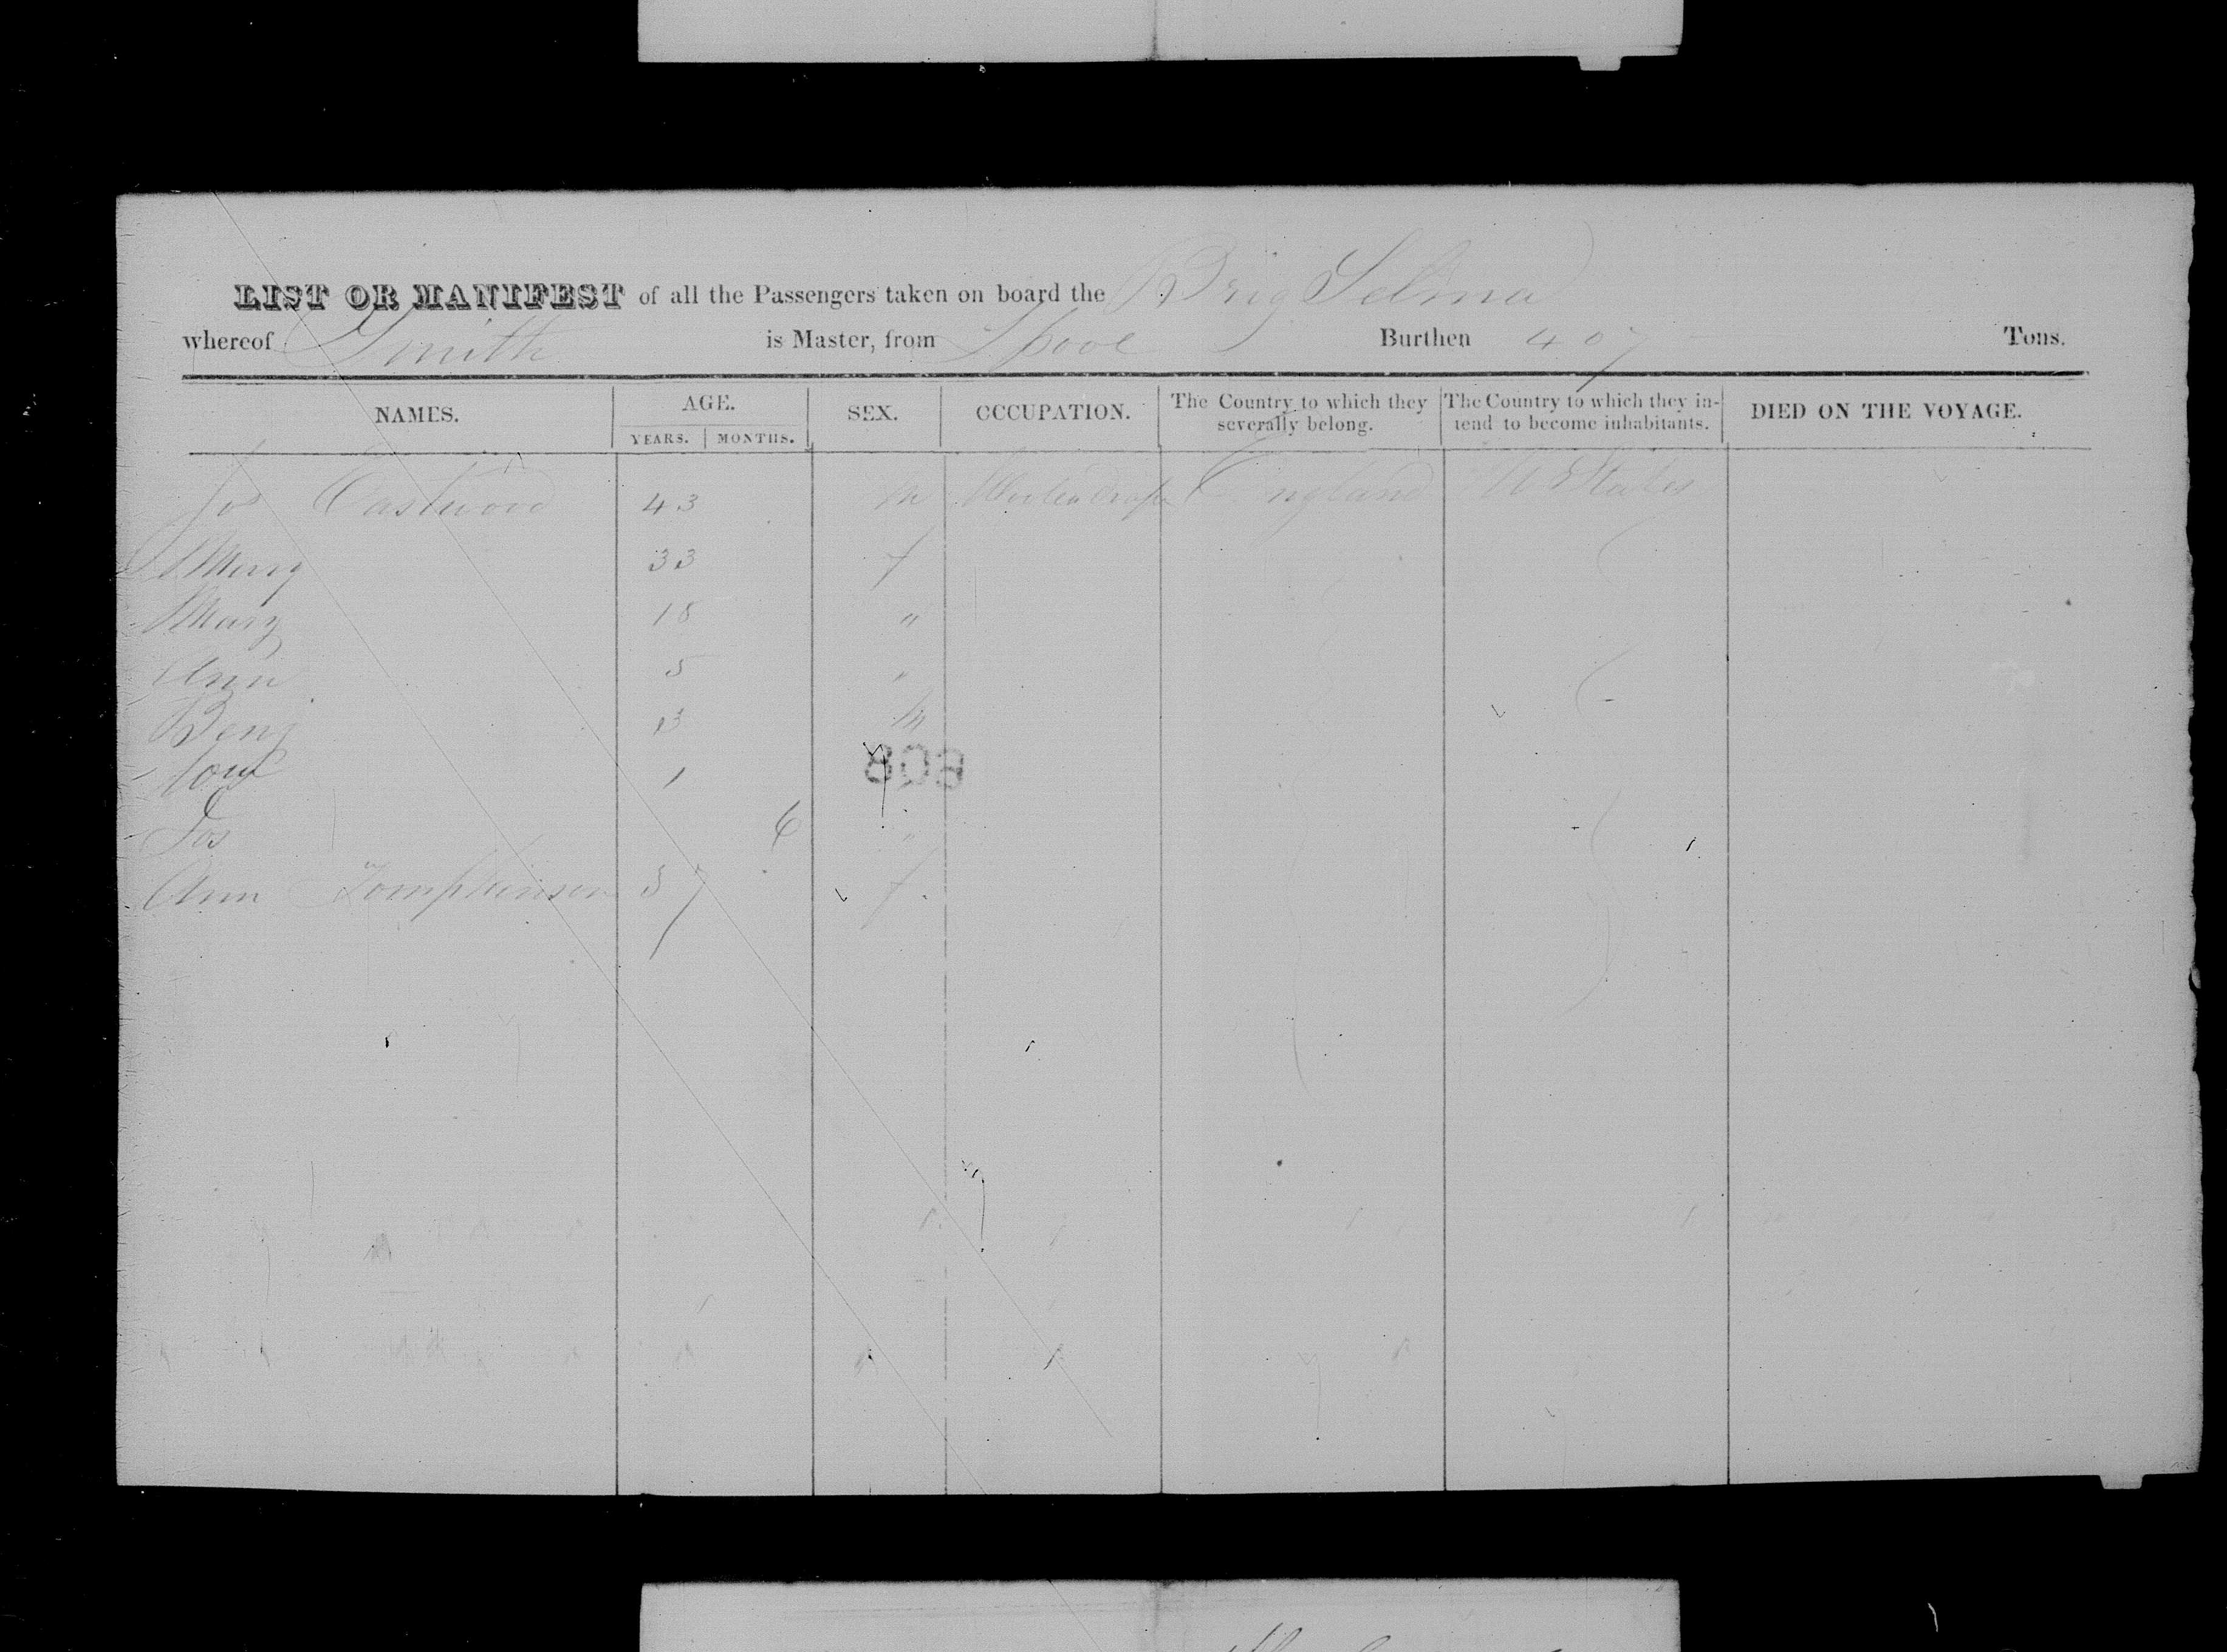 LIST OR MANIFEST of all the Passengers taken on board the Brig Selma
whereof Smith is Master, from Lpool Burthen 407 Tons.
NAMES. AGE. SEX. OCCUPATION. The Country to which they severally belong. The Country to which they intend to become inhabitants. DIED ON THE VOYAGE.
YEARS. MONTHS.
Jo Eastwood 43 m England U States
Mary 33 f
Mary 18 "
Ann 5 "
Benj 13 m
1
808
Jos 6 "
Ann Tompkinson 37 f